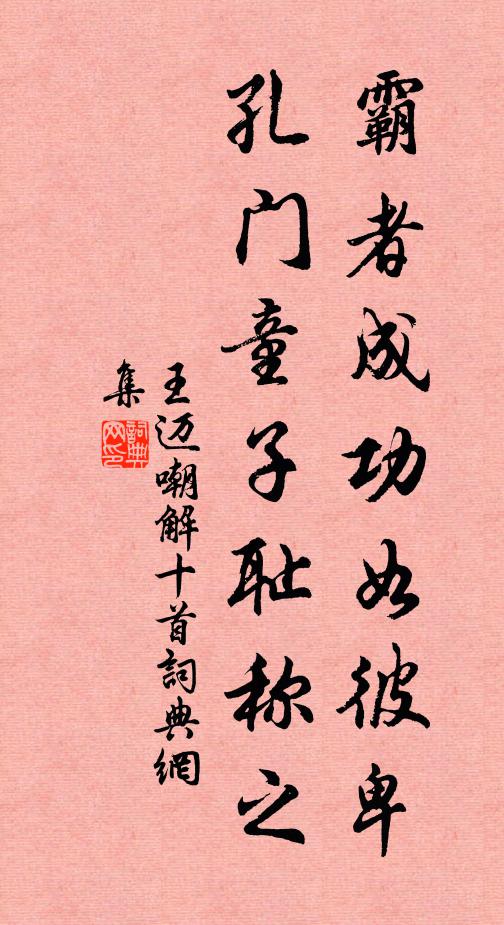 霸者成功如彼卑
孔门童子耻称之
王迈嘲解十首詞典網
集
詞典网印